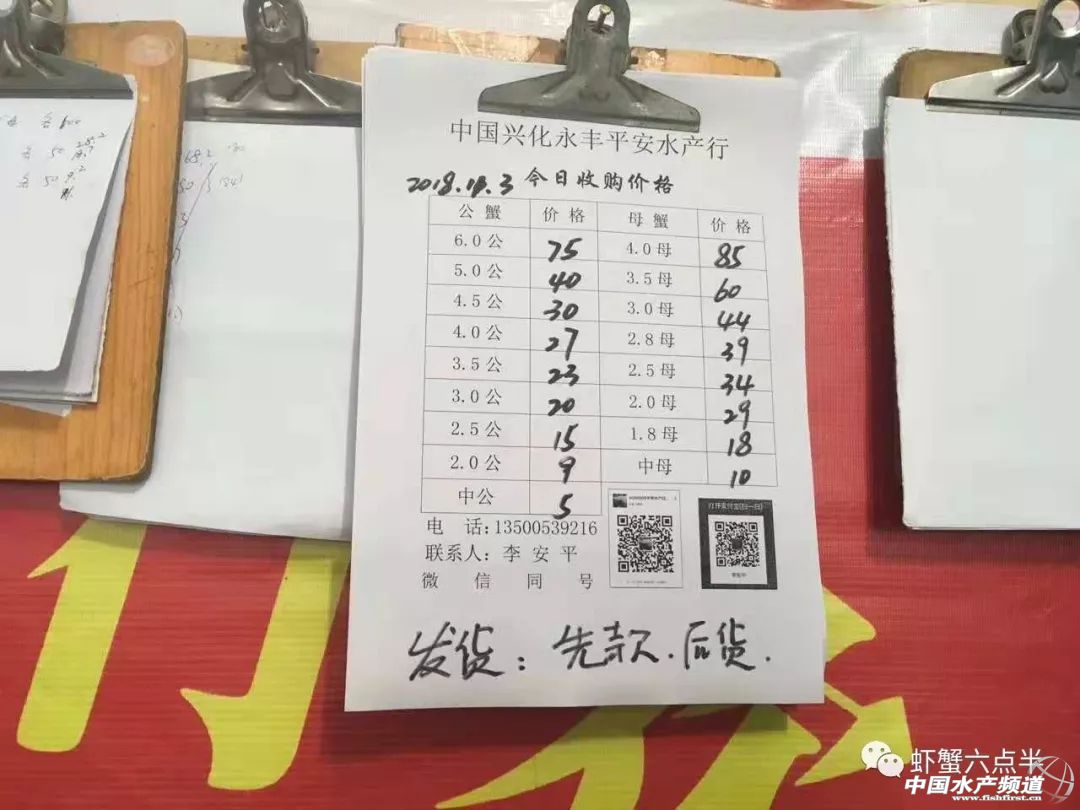 中国兴化永丰平安水产行
今日收购价格
公蟹 价格 母蟹 价格
6.0公 75 4.0母 85
5.0公 40 3.5母 60
4.5公 30 3.0母 44
4.0公 27 2.8母 39
3.5公 23 2.5母 34
3.0公 20 2.0母 29
2.5公 15 1.8母 18
2.0公 9 中母 10
中公 5
电 话:13500539216
联系人: 李安平
微 信 同 号
发货: 先款.后货.
虾蟹六点半
中国水产频道
www.fishfirst.cn